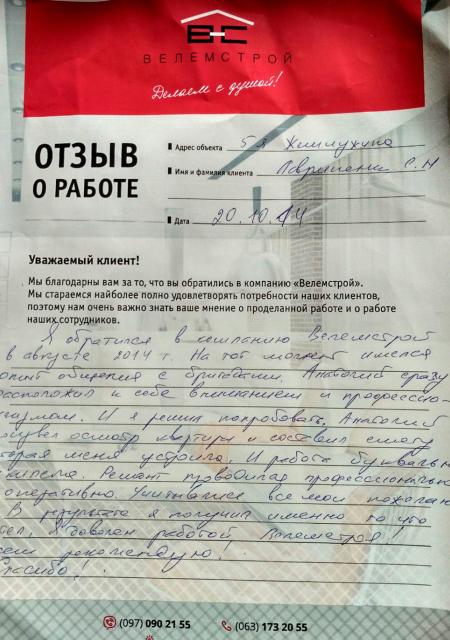 ВС
ВЕЛЕМСТРОЙ
Делаем с душой!
ОТЗЫВ
О РАБОТЕ
Адрес объекта 5я Жемчужина
Имя и фамилия клиента С.Н
Дата 20.10.14
Уважаемый клиент!
Мы благодарны вам за то, что вы обратились в компанию «Велемстрой».
Мы стараемся наиболее полно удовлетворять потребности наших клиентов,
поэтому нам очень важно знать ваше мнение о проделанной работе и о работе
наших сотрудников.
Я обратился в компанию Велемстрой
в августе 2014 г. На тот момент имелся
опыт общения с бригадами. Анатолий сразу
расположил к себе вниманием и профессио-
ализмом. И я решил попробовать. Анатолий
осмотр квартиры и составил смету
торая меня устроила. И работа буквально
Ремонт проводился профессионально
оперативно. Учитывались все мои пожелан
В результате я получил именно то что
тел. Я доволен работой Велемстроя.
сем рекомендую.
Спасибо!
(097) 090 21 55 (063) 173 20 55